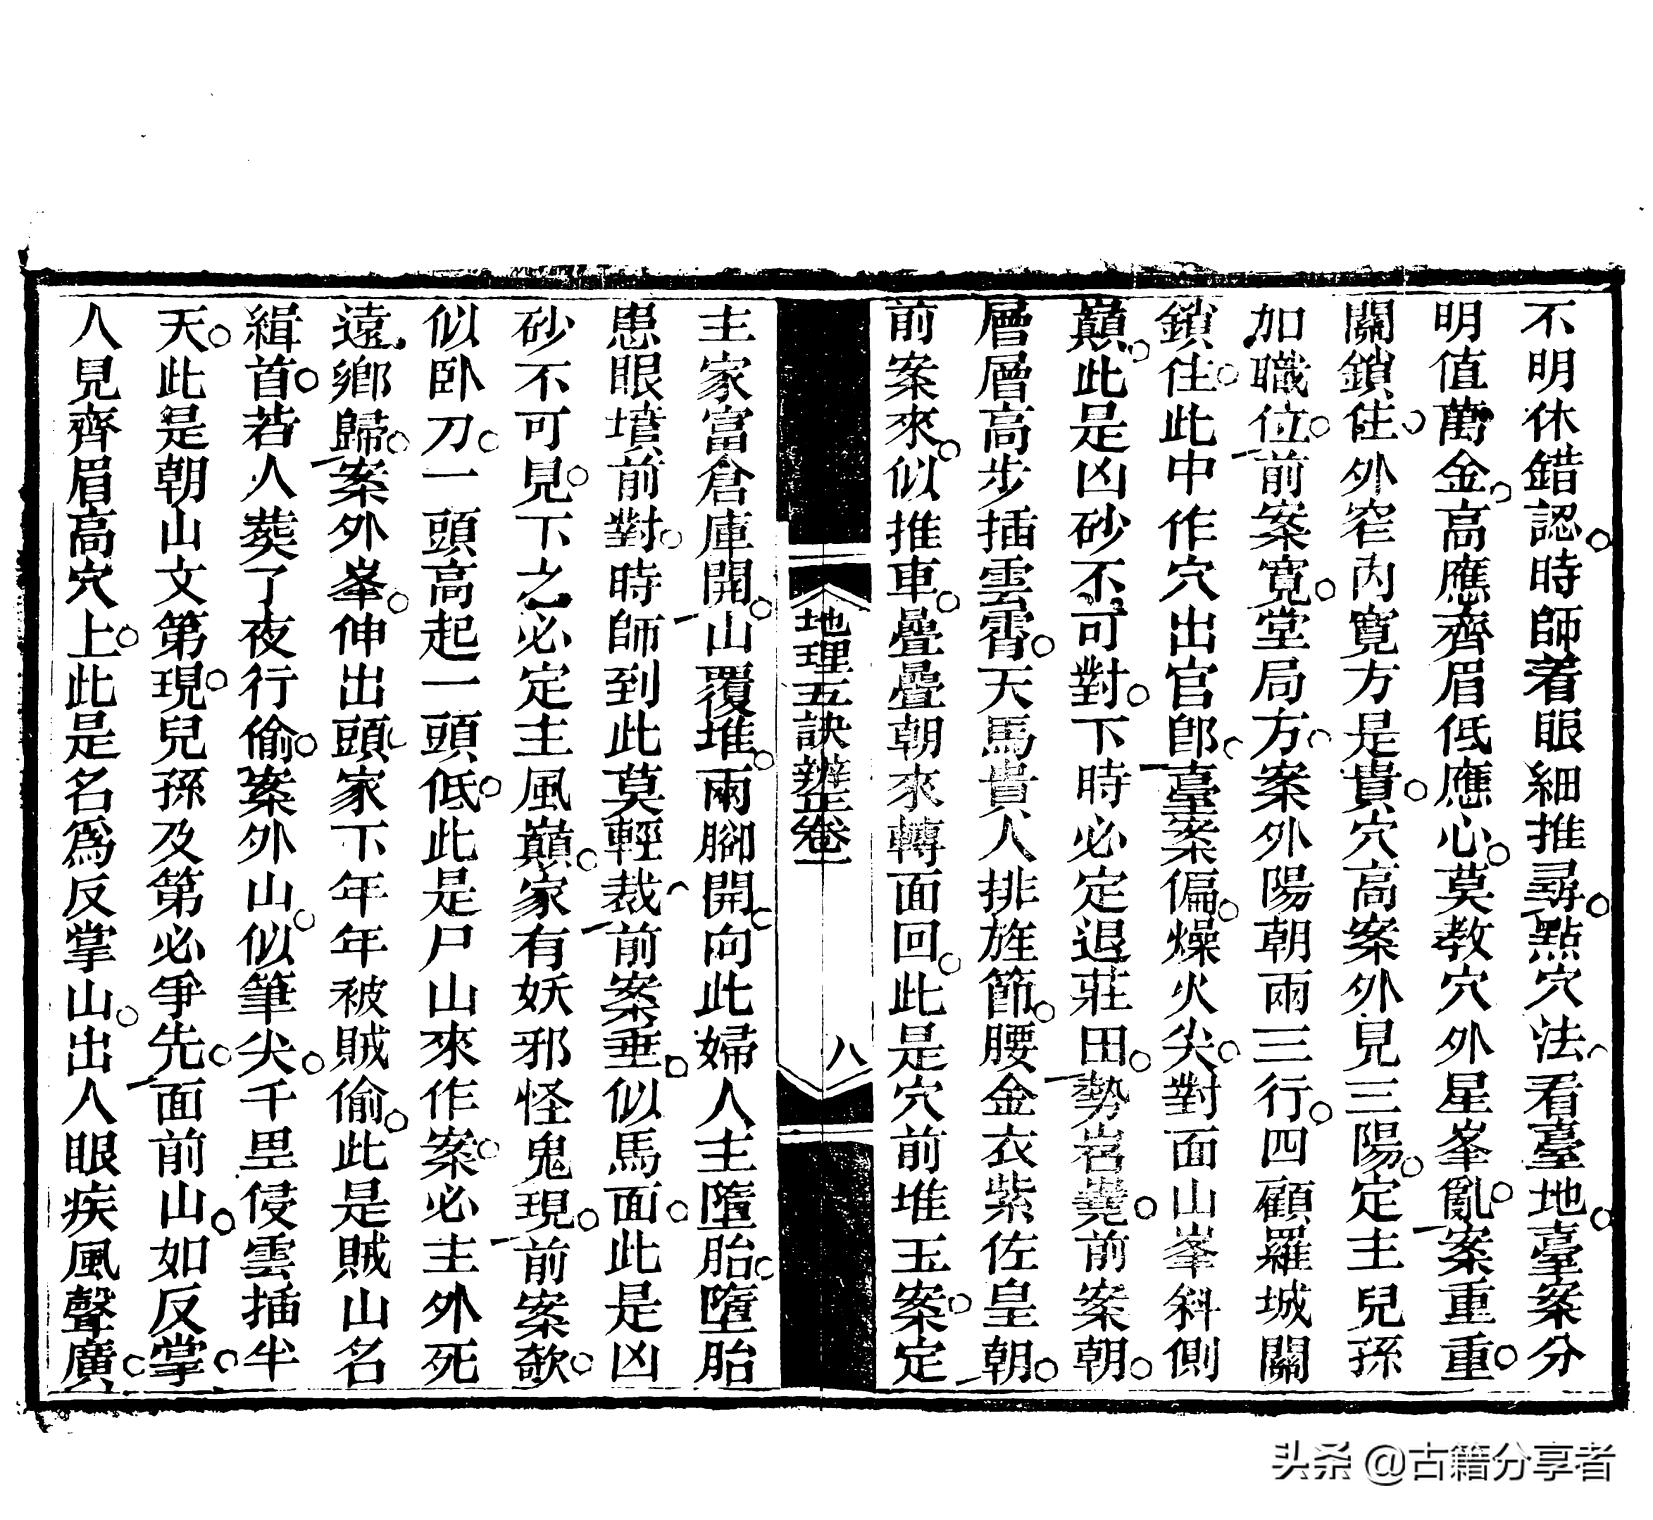 不明休錯認時師着眼細推尋點穴法看臺地臺案分
明值萬金高應齊眉低應心莫教穴外星峯亂案重重
關鎖住外窄內寬方是貴穴高案外見三陽定主兒孫
加職位前案寬堂局方案外陽朝兩三行四顧羅城關
鎖住此中作穴出官郎臺案偏燥火尖對面山峯斜側
巔此是凶砂不可對下時必定退莊田勢岩嶤前案朝
層層高步插雲霄天馬貴人排旌節腰金衣紫佐皇朝
前案來似推車疊疊朝來轉面回此是穴前堆玉案定
地理五訣辨正卷一
八
主家富倉庫開山覆堆兩腳開向此婦人主墮胎墮胎
患眼墳前對時師到此莫輕裁前案垂似馬面此是凶
砂不可見下之必定主風巔家有妖邪怪鬼現前案欹
似卧刀一頭高起一頭低此是尸山來作案必主外死
遠鄉歸案外峯伸出頭家下年年被賊偷此是賊山名
緝首若人葬了夜行偷案外山似筆尖千里侵雲插半
天此是朝山文第現兒孫及第必爭先面前山如反掌
人見齊眉高穴上此是名爲反掌山出人眼疾風聲廣
头条 @古籍分享者